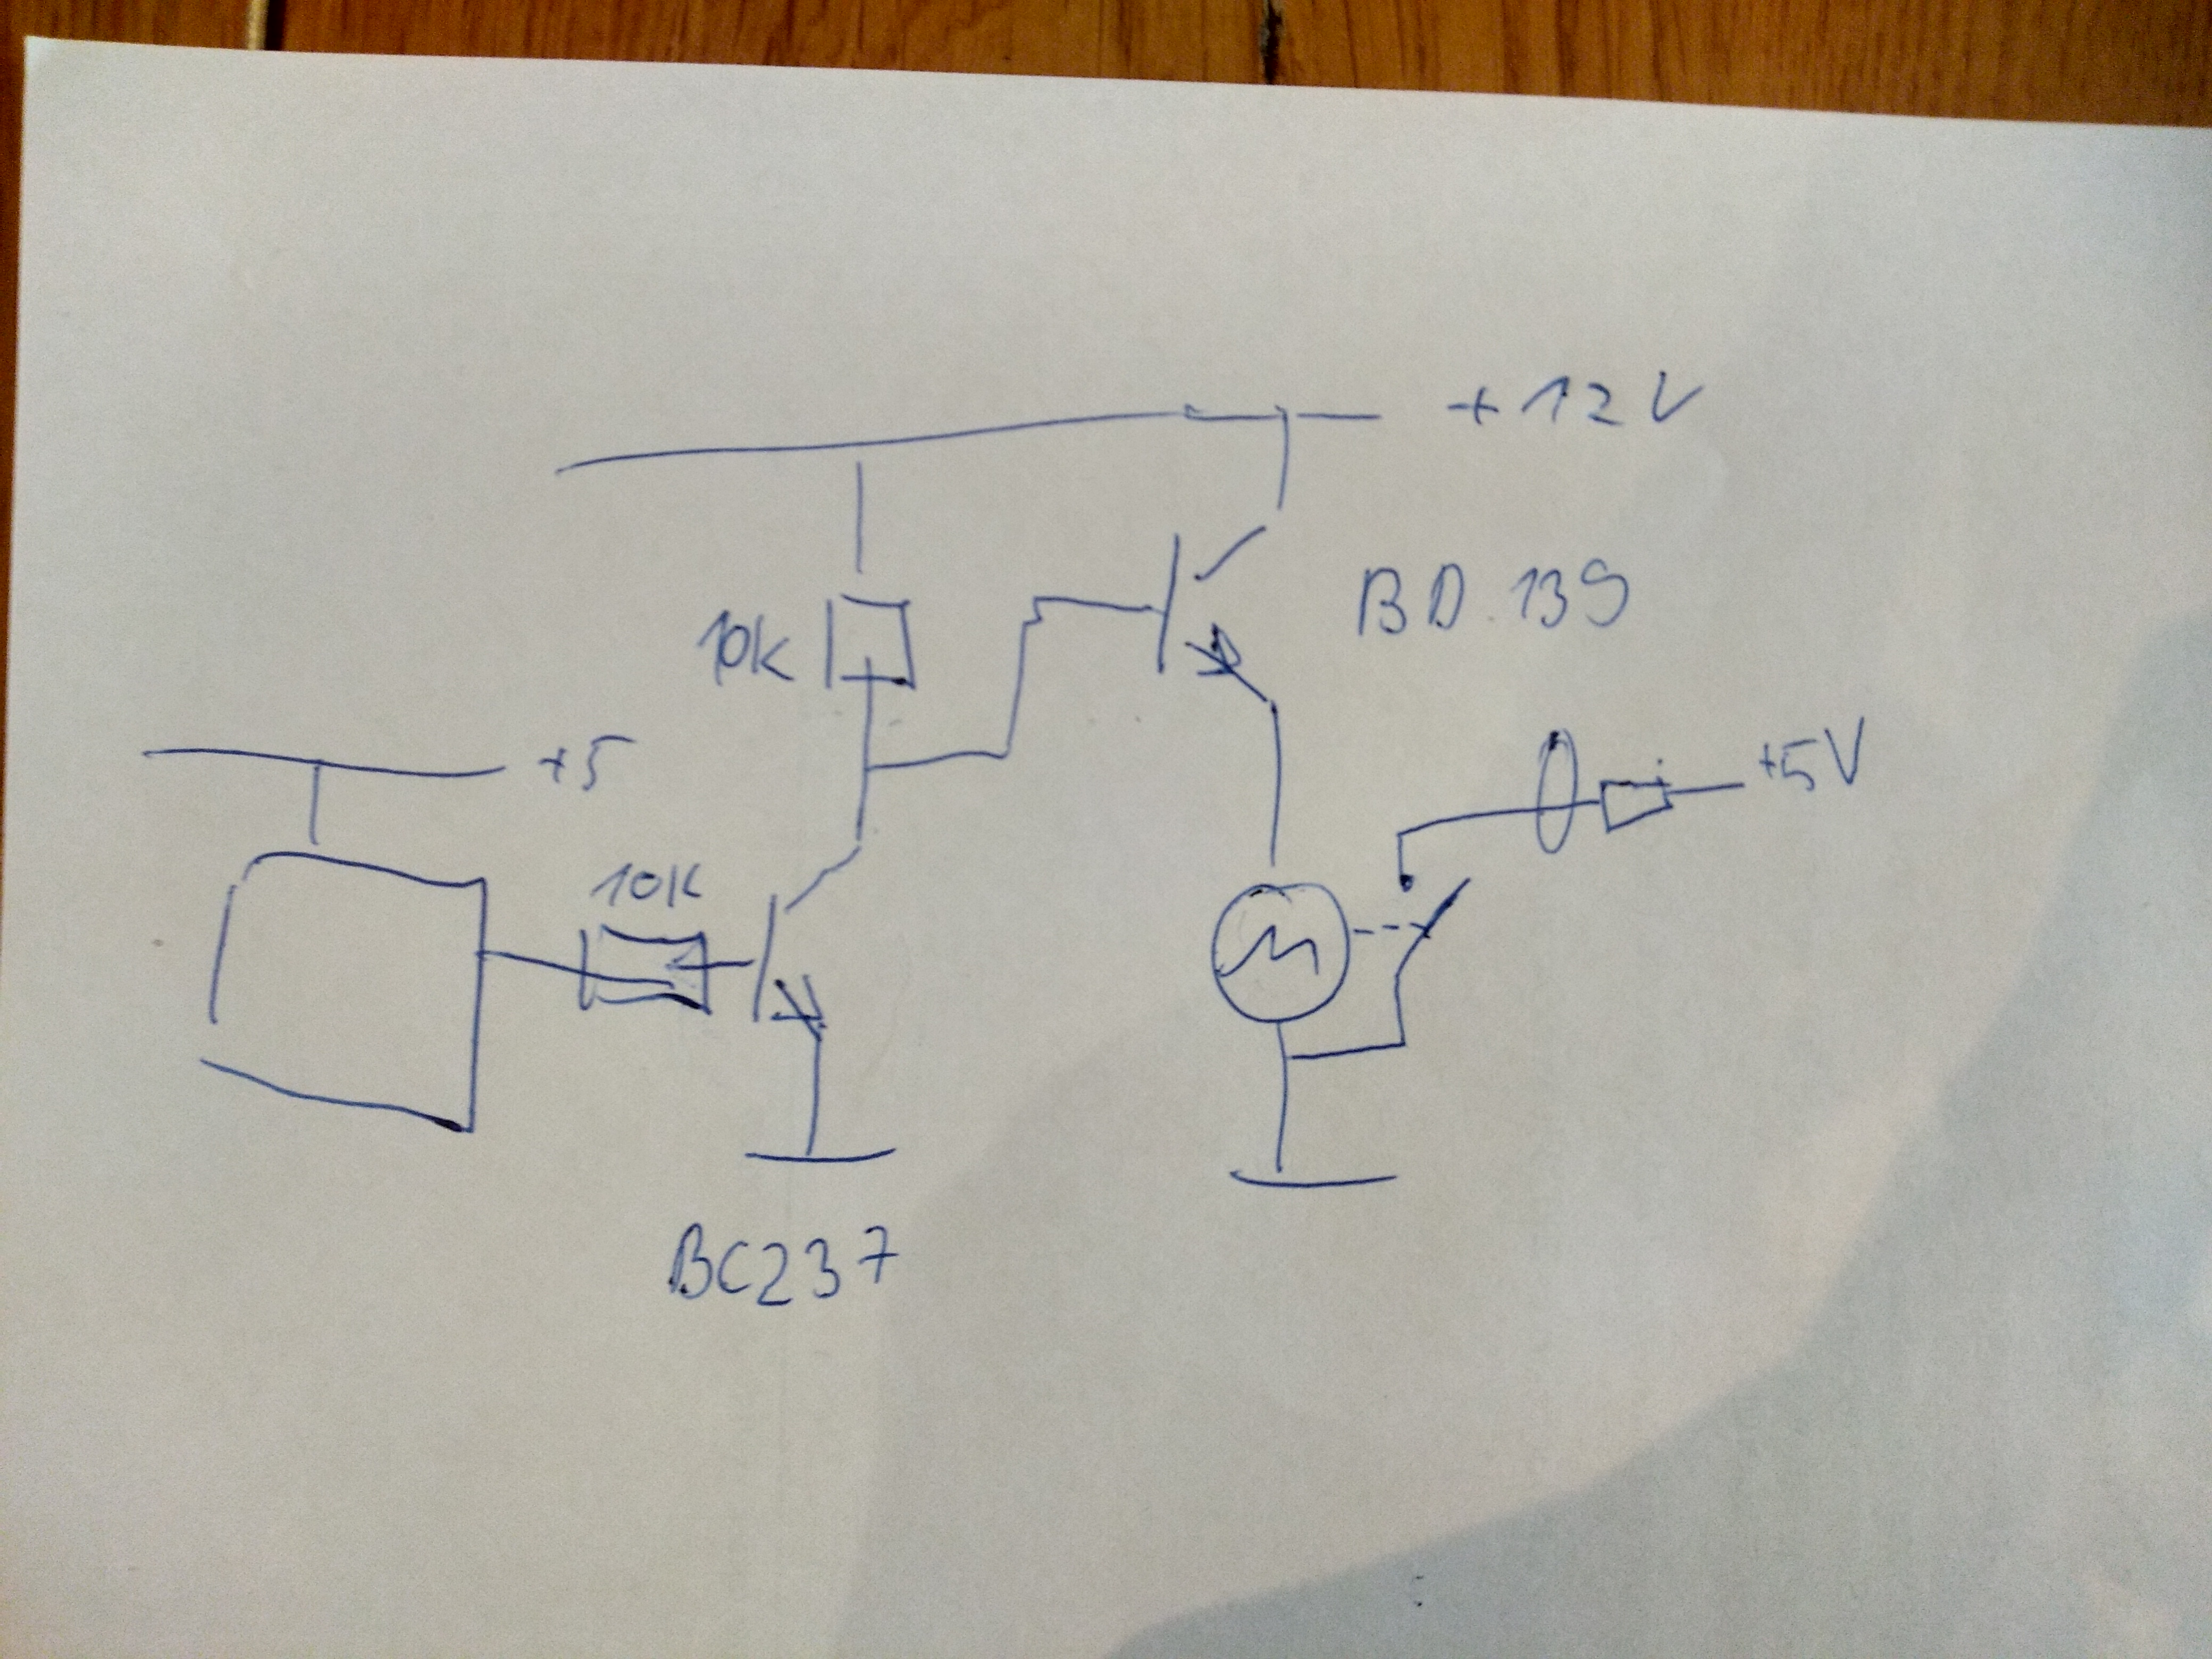 +12V
BD.139
10K
+5
+5V
10K
M
BC237